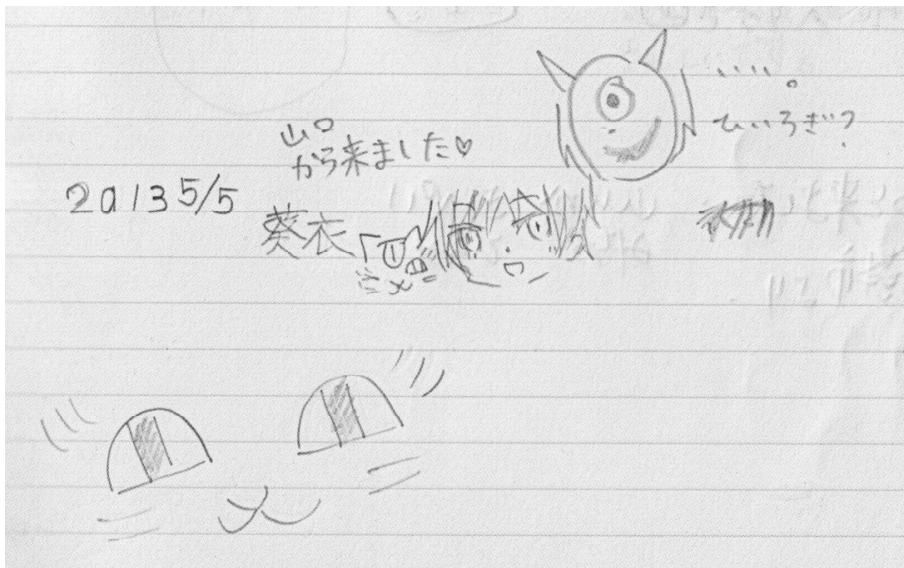 山口
から来ました♡
20135/5
葵衣
‥‥。
ひいろぎ?